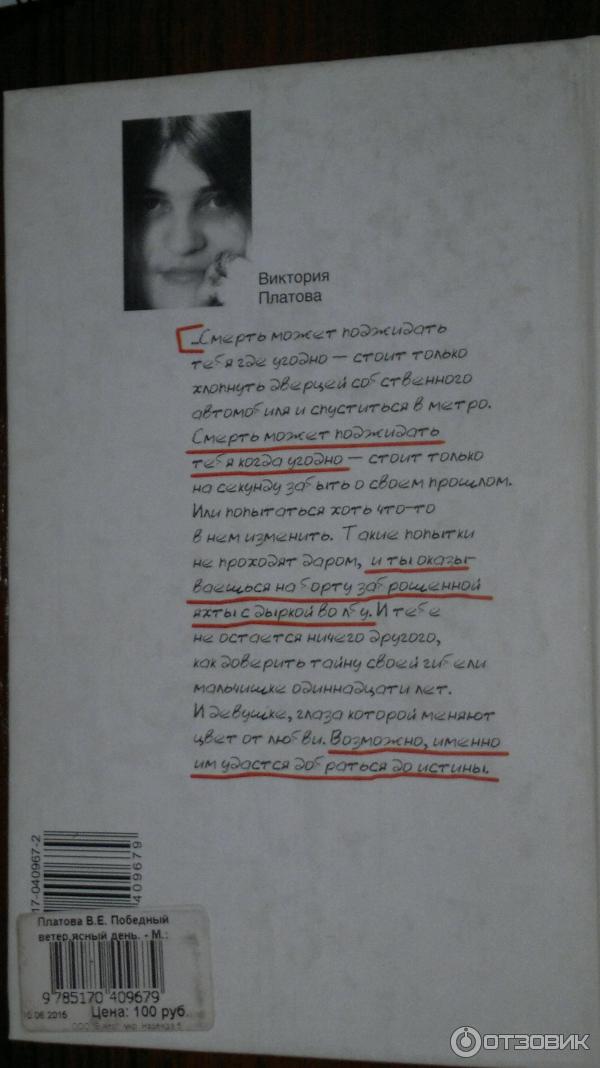 Виктория
Платова
...Смерть может поджидать
тебя где угодно — стоит только
хлопнуть дверцей собственного
автомобиля и спуститься в метро.
Смерть может поджидать
тебя когда угодно — стоит только
на секунду забыть о своем прошлом.
Или попытаться хоть что-то
в нем изменить. Такие попытки
не проходят даром, и ты оказы
ваешься на борту заброшенной
яхты с дыркой во лбу. И тебе
не остается ничего другого,
как доверить тайну своей гибели
мальчишке одиннадцати лет.
И девушке, глаза которой меняют
цвет от любви. Возможно, именно
им удастся добраться до истины.
17-040967-2
409679
Платова В.Е. Победный
ветер,ясный день. - М.:
9 785170 409679
06 2015 Цена: 100 руб.
ООО
ОТЗОВИК